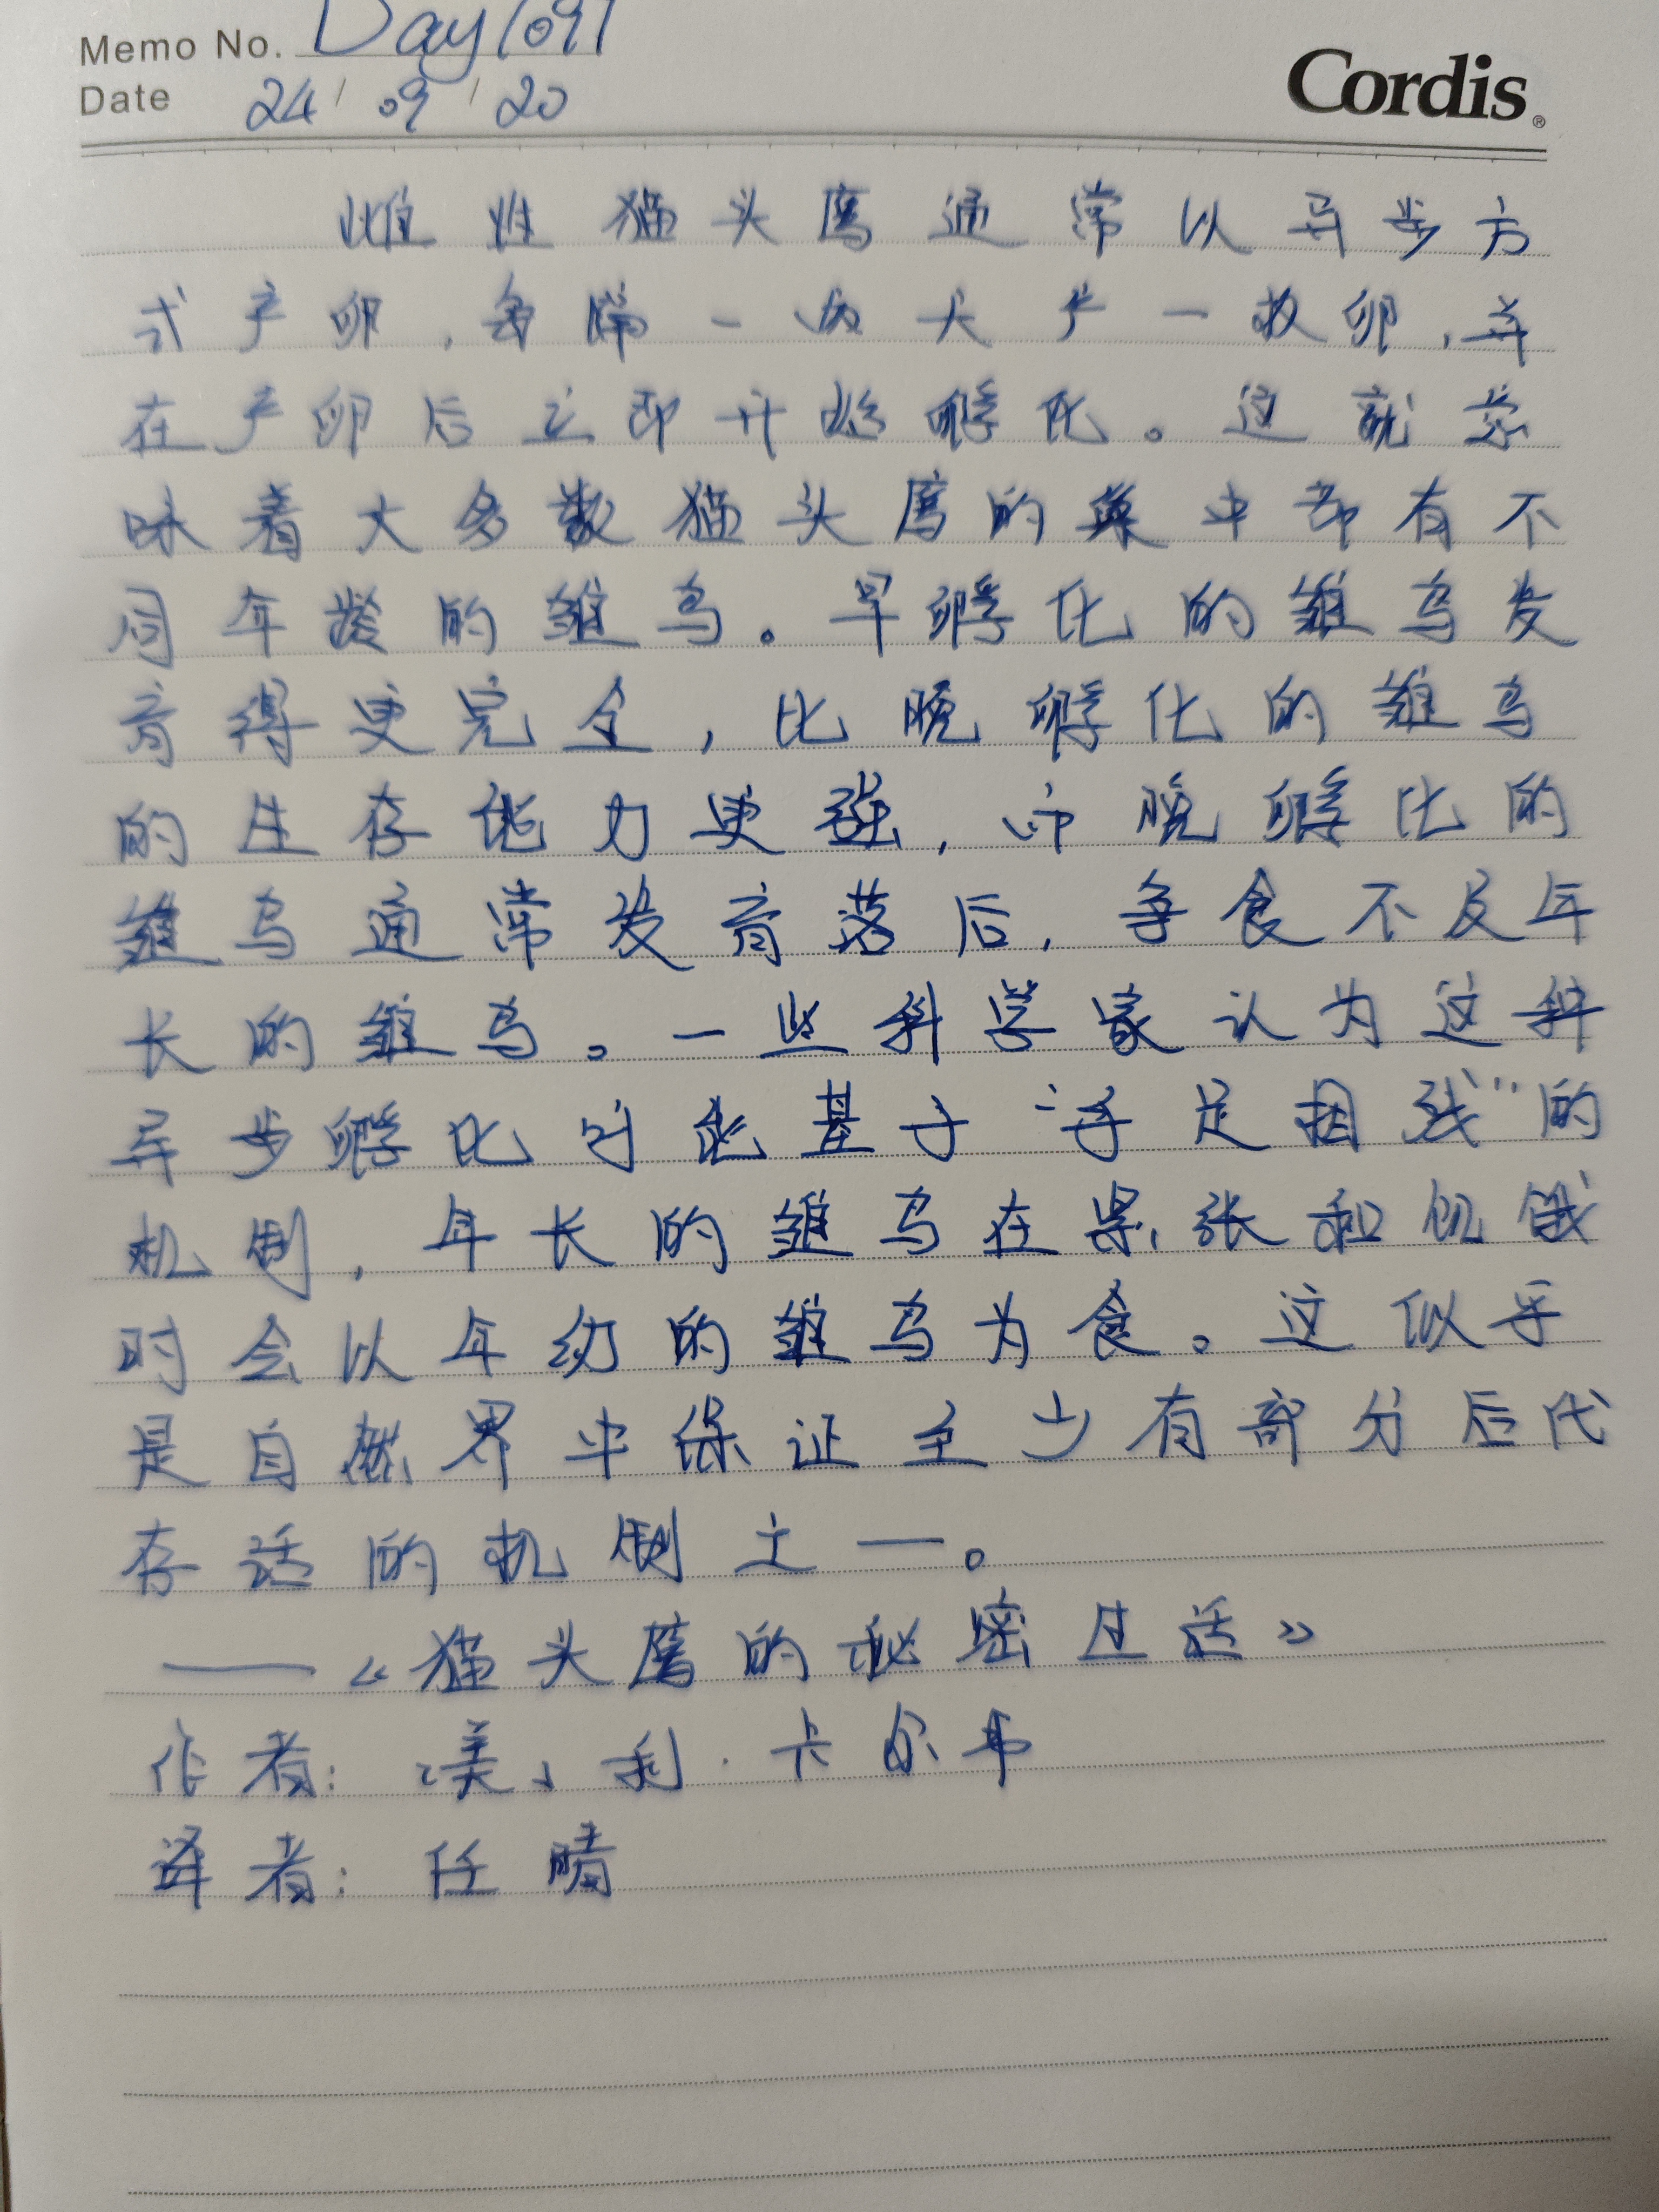 Memo No. Day1091
Date 24/09/20
Cordis®
雌性猫头鹰通常以异步方
式产卵,每隔一两天产一枚卵,并
在产卵后立即开始孵化。这就意
味着大多数猫头鹰的巢中都有不
同年龄的雏鸟。早孵化的雏鸟发
育得更完全,比晚孵化的雏鸟
的生存能力更强,而晚孵化的
雏鸟通常发育落后,争食不及年
长的雏鸟。一些科学家认为这种
异步孵化可能基于“手足相残”的
机制,年长的雏鸟在紧张和饥饿
时会以年幼的雏鸟为食。这似乎
是自然界中保证至少有部分后代
存活的机制之一。
——《猫头鹰的秘密生活》
作者:[美]利·卡尔弗
译者:任晴